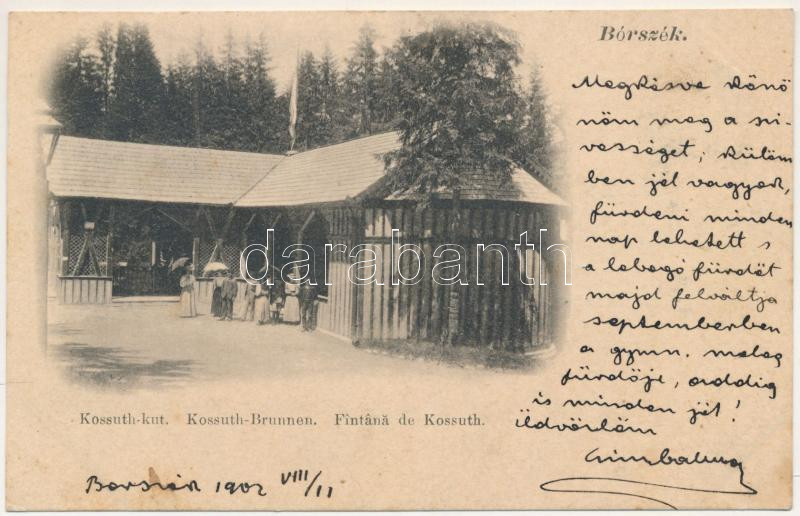 Bórszék.
Megkésve kö
nöm meg a szi-
vességet; külöm
ben jól vagyok,
fürdeni minden
nap lehetett s
a lobogó fürdőt
majd felváltja
septemberben
a gymn. meleg
fürdője, addig
is minden jót!
üdvözlöm
darabanth.com
Kossuth-kut. Kossuth-Brunnen. Fîntână de Kossuth.
Borszék 1902 VIII/11